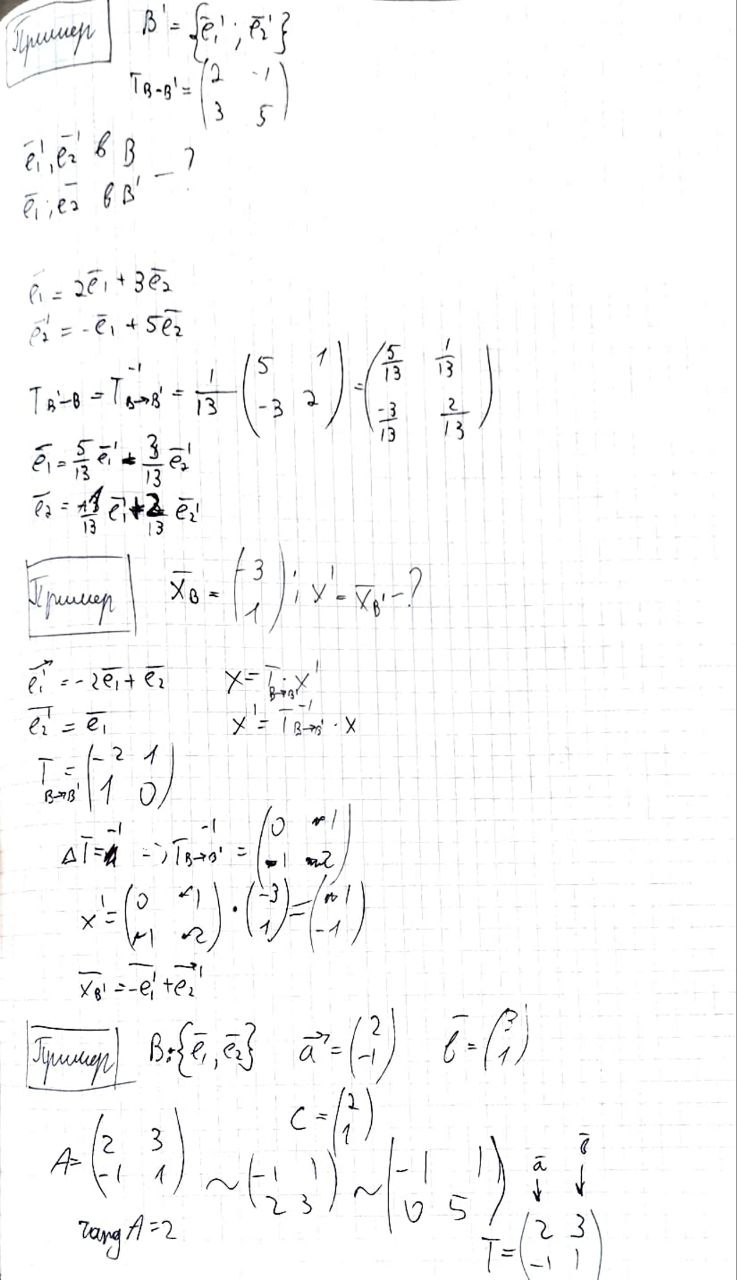 Пример B' = {e̅₁'; e̅₂'}
T B-B' = (2 -1
3 5)
e̅₁', e̅₂' в B
e̅₁; e̅₂ в B' — ?
e̅₁' = 2e̅₁ + 3e̅₂
e̅₂' = -e̅₁ + 5e̅₂
T B'-B = T⁻¹ B→B' = 1/13 (5 1
-3 2) = (5/13 1/13
-3/13 2/13)
e̅₁ = 5/13 e̅₁' - 3/13 e̅₂'
e̅₂ = 1/13 e̅₁' + 2/13 e̅₂'
Пример x̅B = (-3
1); x' = x̅B' - ?
e₁' = -2e̅₁ + e̅₂ x = T B→B' · x'
e₂' = e̅₁ x' = T⁻¹ B→B' · x
T B→B' = (-2 1
1 0)
ΔT = -1 → T⁻¹ B→B' = (0 1
1 2)
x' = (0 1
1 2) · (-3
1) = (1
-1)
x̅B' = -e₁' + e₂'
Пример B: {e̅₁, e̅₂} a = (2
-1) b̅ = (3
1)
c = (2
1)
A = (2 3
-1 1) ~ (-1 1
2 3) ~ (-1 1
0 5) a̅ b̅
↓ ↓
rang A = 2 T = (2 3
-1 1)